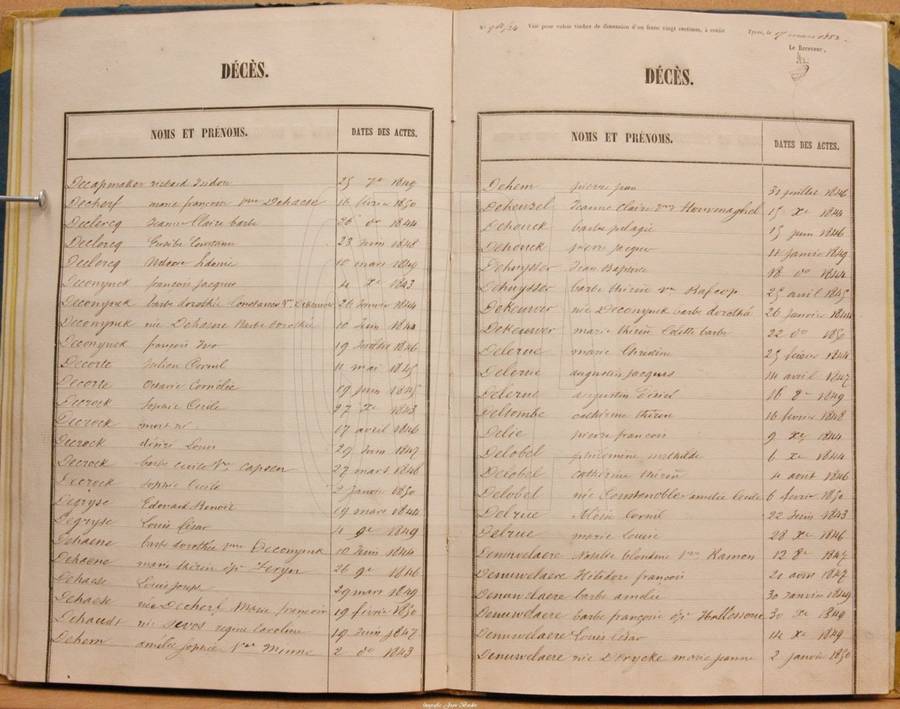 DÉCÈS.
NOMS ET PRÉNOMS. DATES DES ACTES.
Decapmaker richard Isidore 25 7re 1849
Decherf marie françoise Vme Dehaese 16 février 1850
Declercq Jeanne Claire barbe 26 do 1844
Declercq Eusèbe Constant 23 Juin 1848
Declercq 10 mars 1849
Deconynck françois Jacques 4 xe 1843
Deconynck barbe dorothée Constance Ve 26 Janvier 1844
Deconynck née Dehaene Barbe Dorothée 10 Juin 1844
Deconynck françois Ivo 19 1846
Decorte Julien Cornil 11 mai 1845
Decorte Octavie Cornélie 19 juin 1845
Decrock Sophie Cécile 27 xe 1843
Decrock mort né 17 avril 1846
Decrock désiré Louis 29 Juin 1847
Decrock barbe cécile Ve Capoen 27 mars 1848
Decrock Sophie Cécile 2 janvier 1850
Degryse Edouard Benoit 19 mars 1844
Degryse Louis César 4 9e 1849
Dehaene barbe dorothée Vme Deconynck 10 Juin 1844
Dehaene marie thérèse 26 9e 1846
Dehaese Louis Joseph 29 mars 1849
Dehaese née Decherf Marie françoise 19 février 1850
née Devos regine Caroline 19 Juin 1847
Dehem amélie Sophie Ve Minne 2 do 1843
No Visé pour valoir timbre de dimension d'un franc vingt centimes, à remise
Ypres, le mars 1853.
Le Receveur,
DÉCÈS.
NOMS ET PRÉNOMS. DATES DES ACTES.
Dehem pierre jean 31 juillet 1846
Jeanne Claire 15 xe 1844
Dehouck barbe pélagie 15 juin 1846
Dehouck pierre jacques 11 janvier 1849
Dehuysser Jean Baptiste 18 do 1844
Dehuysser barbe thérèse Ve 25 avril 1845
Dekeuwer née Deconynck barbe dorothé 26 janvier 1844
Dekeuwer marie thérèse Colette barbe 22 do 1850
Delerue marie Christine 25 février 1844
Delerue augustin jacques 14 avril 1847
Delerue augustin 16 8e 1849
Deltombe catherine thérèse 16 février 1848
Delie pierre françois 9 xe 1844
Delobel philomène 6 xe 1844
Delobel catherine thérèse 4 août 1846
Delobel née Constenoble amélie 6 février 1850
Delrue Aloïs Cornil 22 Juin 1843
Delrue marie Louise 28 xe 1846
Denuwelaere Natalie blondine Ramon 12 8e 1847
Denuwelaere Héliodore françois 21 août 1847
Denuwelaere barbe amélie 30 Janvier 1849
Denuwelaere barbe françoise 30 xe 1849
Denuwelaere Louis César 14 xe 1849
Denuwelaere née Dorycke marie jeanne 2 janvier 1850